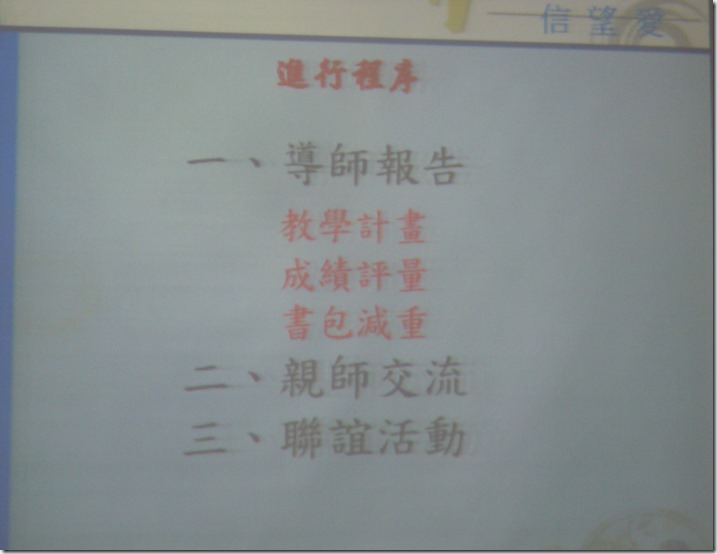 信望愛
進行程序
一、導師報告
教學計畫
成績評量
書包減重
二、親師交流
三、聯誼活動